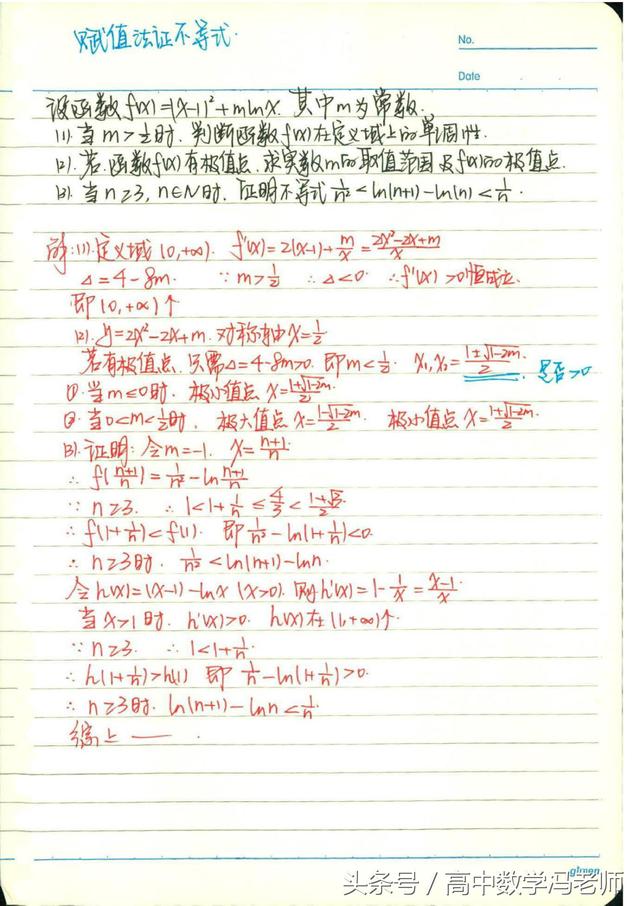 赋值法证不等式.
No.
Date
设函数f(x)=(x-1)²+mlnx. 其中m为常数.
(1). 当m>1/2时. 判断函数f(x)在定义域上的单调性.
(2). 若函数f(x)有极值点. 求实数m的取值范围及f(x)的极值点.
(3). 当n≥3, n∈N时. 证明不等式1/n²<ln(n+1)-ln(n)<1/n.
解: (1). 定义域(0,+∞). f'(x)=2(x-1)+m/x=(2x²-2x+m)/x
△=4-8m. ∵m>1/2 ∴△<0. ∴f'(x)>0恒成立.
即(0,+∞)↑
(2). y=2x²-2x+m. 对称轴x=1/2
若有极值点. 只需△=4-8m>0. 即m<1/2. x₁,x₂=(1±√(1-2m))/2. 是否>0
①. 当m≤0时. 极小值点x=(1+√(1-2m))/2.
②. 当0<m<1/2时. 极大值点x=(1-√(1-2m))/2. 极小值点x=(1+√(1-2m))/2.
(3). 证明: 令m=-1. x=(n+1)/n.
∴f((n+1)/n)=1/n²-ln(n+1)/n
∵n≥3. ∴1<1+1/n≤4/3<(1+√3)/2.
∴f(1+1/n)<f(1). 即1/n²-ln(1+1/n)<0.
∴n≥3时. 1/n²<ln(n+1)-lnn.
令h(x)=(x-1)-lnx (x>0). 则h'(x)=1-1/x=(x-1)/x
当x>1时. h'(x)>0. h(x)在(1,+∞)↑.
∵n≥3. ∴1<1+1/n.
∴h(1+1/n)>h(1) 即1/n-ln(1+1/n)>0.
∴n≥3时. ln(n+1)-lnn<1/n.
综上——.
gimon
头条号 / 高中数学冯老师